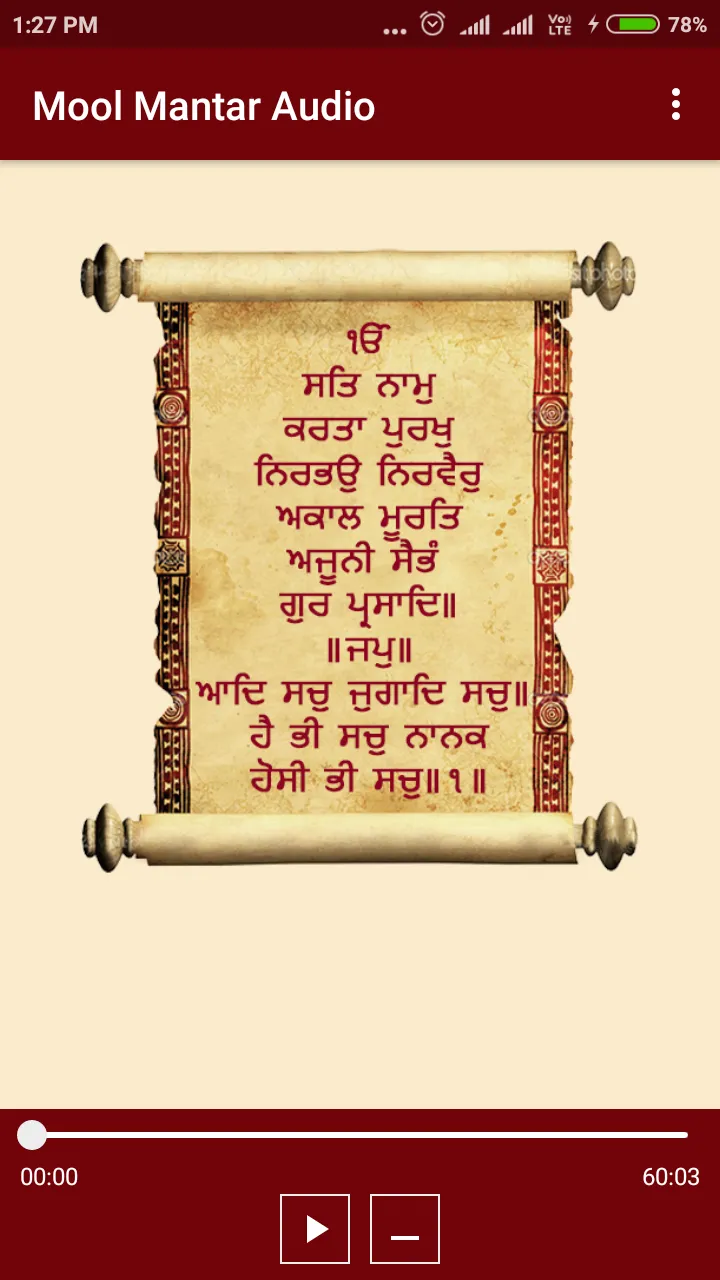 1:27 PM
Vo) LTE
78%
Mool Mantar Audio
ੴ
ਸਤਿ ਨਾਮੁ
ਕਰਤਾ ਪੁਰਖੁ
ਨਿਰਭਉ ਨਿਰਵੈਰੁ
ਅਕਾਲ ਮੂਰਤਿ
ਅਜੂਨੀ ਸੈਭੰ
ਗੁਰ ਪ੍ਰਸਾਦਿ॥
॥ਜਪੁ॥
ਆਦਿ ਸਚੁ ਜੁਗਾਦਿ ਸਚੁ॥
ਹੈ ਭੀ ਸਚੁ ਨਾਨਕ
ਹੋਸੀ ਭੀ ਸਚੁ॥੧॥
00:00
60:03